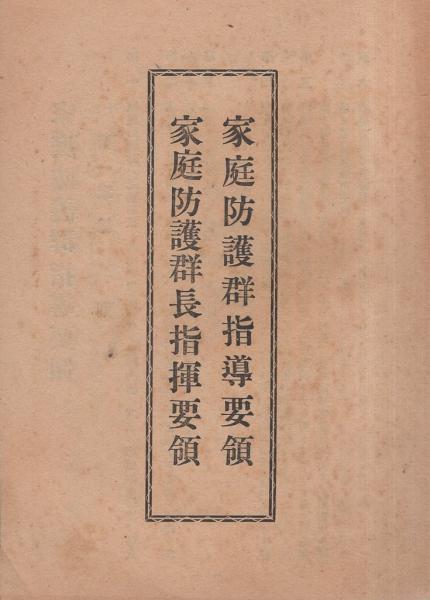 家庭防護群指導要領
家庭防護群長指揮要領